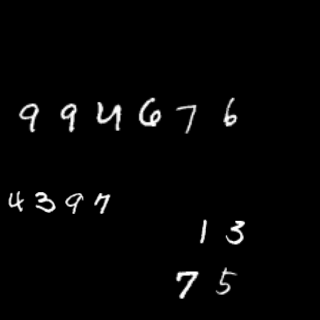 994676
4397
13
75